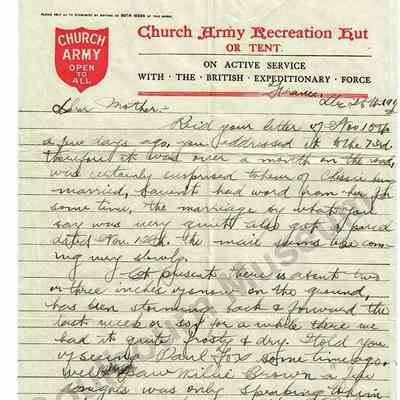 PLEASE HELP US TO ECONOMISE BY WRITING ON BOTH SIDES OF THIS PAPER.
CHURCH
ARMY
OPEN
TO
ALL
Church Army Recreation Hut
OR TENT.
ON ACTIVE SERVICE
WITH · THE · BRITISH · EXPEDITIONARY · FORCE
France, Dec 28th
Dear Mother:-
Recd your letter of Nov 10th
a few days ago, you addressed it to the 23rd
therefore it was over a month on the road,
was certainly surprised to hear of being
married, havent had word from her for
some time, the marriage by what you
say was very quiet. also got a card
dated Nov 12th. The mail seems be com-
ing very slowly.
At present there is about two
or three inches of snow on the ground,
has been storming back & forward the
last week or so, for a while there we
had it quite frosty & dry. Told you
of seeing Paul Fox some time ago.
well saw Willie Brown a few
nights was only speaking to him